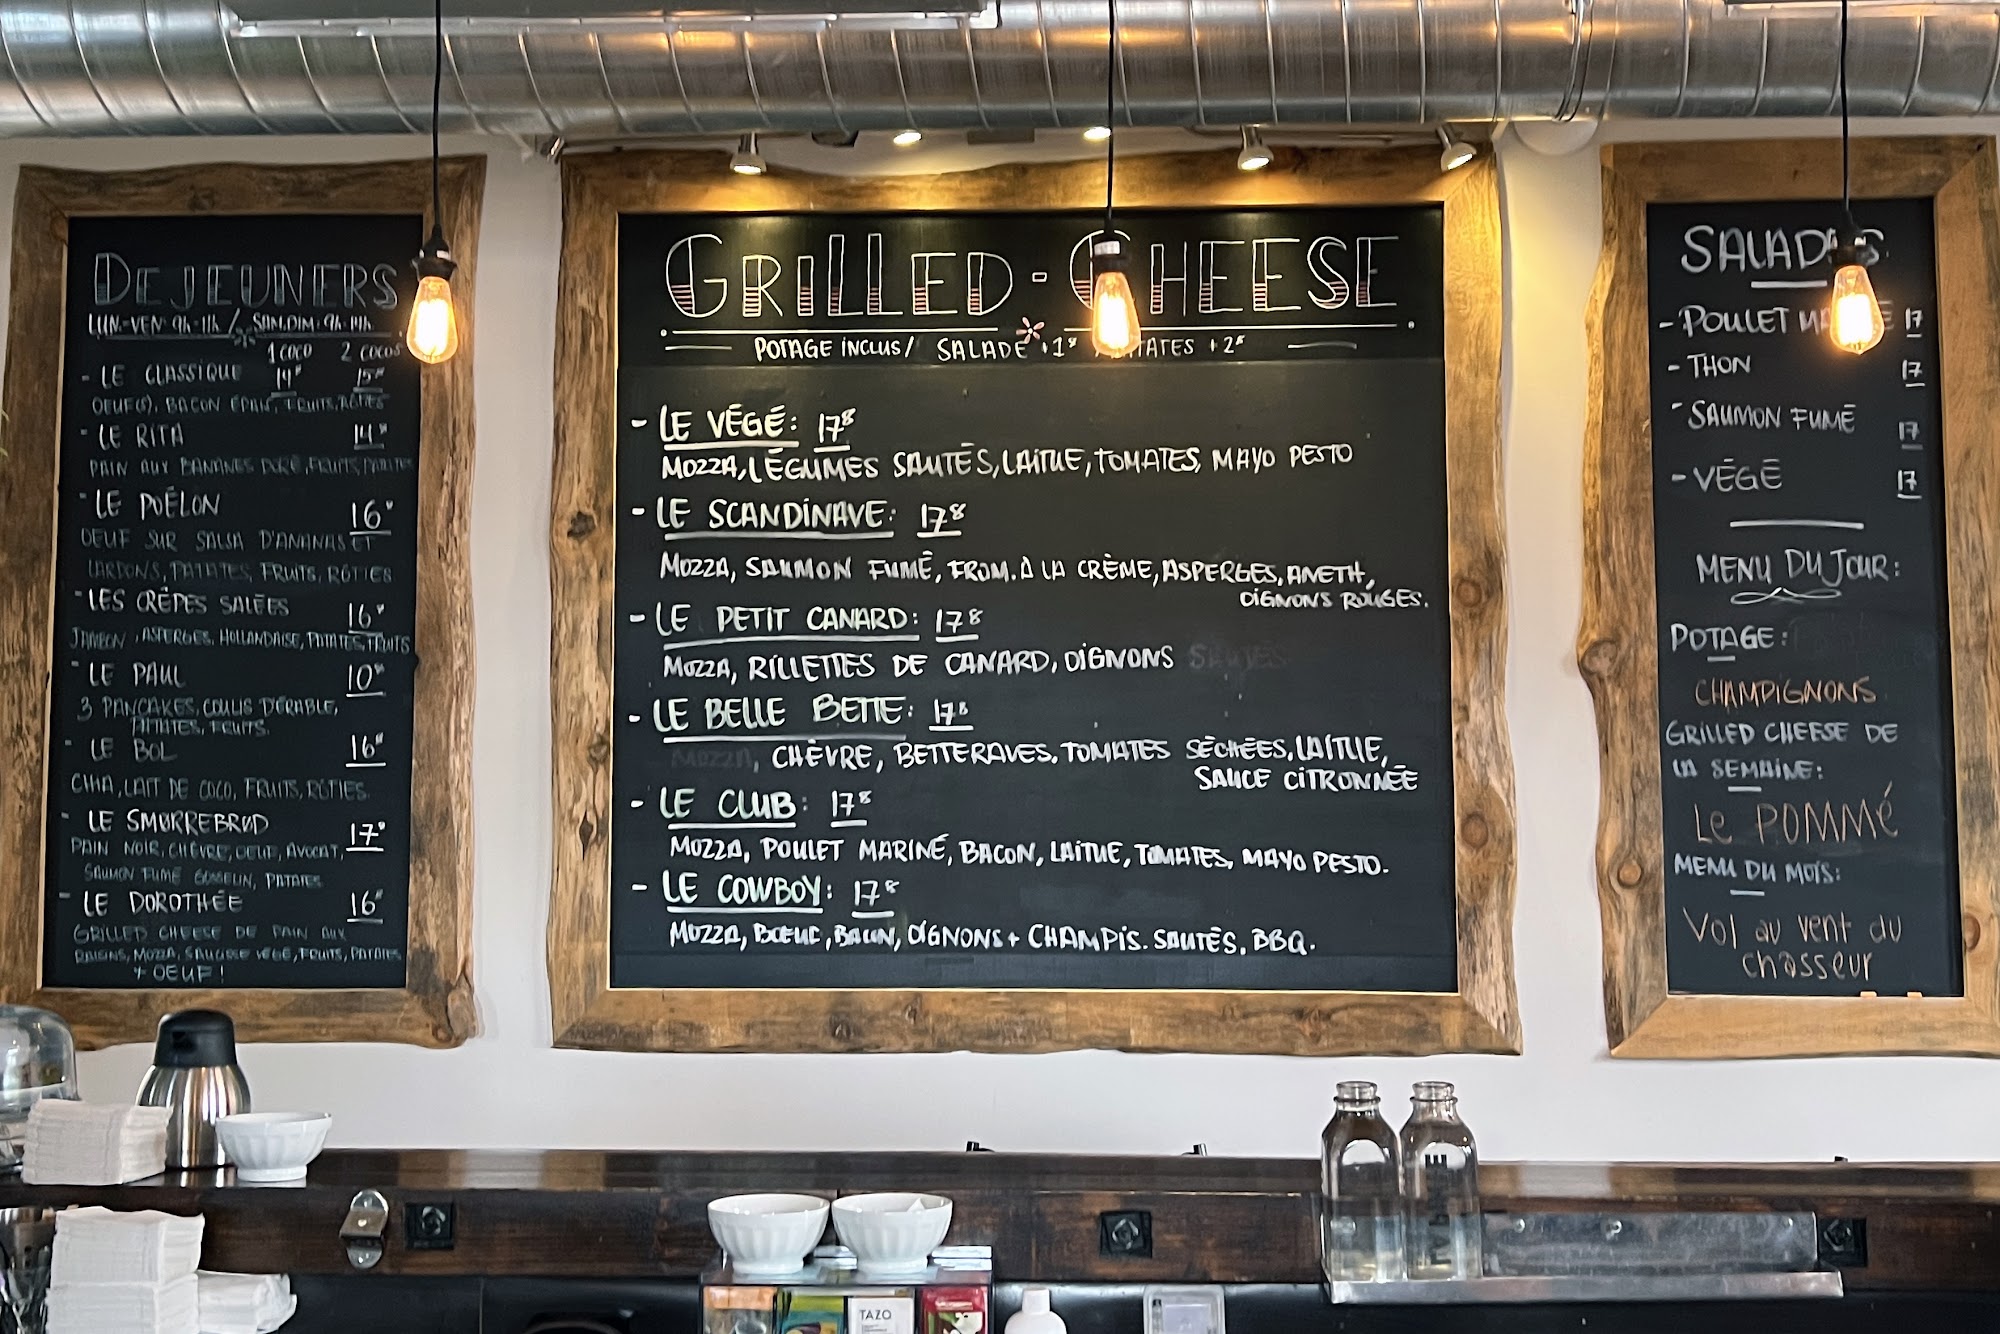 DEJEUNERS
LUN-VEN: 9h-11h / SAM.DIM: 9h-14h
1 COCO 2 COCOS
- LE CLASSIQUE 14" 15"
OEUF(S), BACON ÉPAIS, FRUITS, RÔTIES
- LE RITA 14"
PAIN AUX BANANES DORÉ, FRUITS, PATATES
- LE POÊLON 16"
OEUF SUR SALSA D'ANANAS ET
LARDONS, PATATES, FRUITS, RÔTIES
- LES CRÊPES SALÉES 16"
JAMBON, ASPERGES, HOLLANDAISE, PATATES, FRUITS
- LE PAUL 10"
3 PANCAKES, COULIS D'ÉRABLE,
PATATES, FRUITS.
- LE BOL 16"
CHIA, LAIT DE COCO, FRUITS, RÔTIES.
- LE SMØRREBRØD 17"
PAIN NOIR, CHÈVRE, OEUF, AVOCAT,
SAUMON FUMÉ, PATATES
- LE DOROTHÉE 16"
GRILLED CHEESE DE PAIN AUX
RAISINS, MOZZA, SAUCISSE VÉGÉ, FRUITS, PATATES
+ OEUF!
GRILLED-CHEESE
POTAGE INCLUS/ SALADE +1$ / PATATES +2$
- LE VÉGÉ: 17$
MOZZA, LÉGUMES SAUTÉS, LAITUE, TOMATES, MAYO PESTO
- LE SCANDINAVE: 17$
MOZZA, SAUMON FUMÉ, FROM. À LA CRÈME, ASPERGES, ANETH,
OIGNONS ROUGES.
- LE PETIT CANARD: 17$
MOZZA, RILLETTES DE CANARD, OIGNONS
- LE BELLE BETTE: 17$
MOZZA, CHÈVRE, BETTERAVES, TOMATES SÉCHÉES, LAITUE,
SAUCE CITRONNÉE
- LE CLUB: 17$
MOZZA, POULET MARINÉ, BACON, LAITUE, TOMATES, MAYO PESTO.
- LE COWBOY: 17$
MOZZA, BOEUF, BACON, OIGNONS + CHAMPIS. SAUTÉS, BBQ.
SALADES
- POULET MARINÉ 17
- THON 17
- SAUMON FUMÉ 17
- VÉGÉ 17
MENU DU JOUR:
POTAGE:
CHAMPIGNONS
GRILLED CHEESE DE
LA SEMAINE:
Le POMMÉ
MENU DU MOIS:
Vol au vent du
chasseur
TAZO